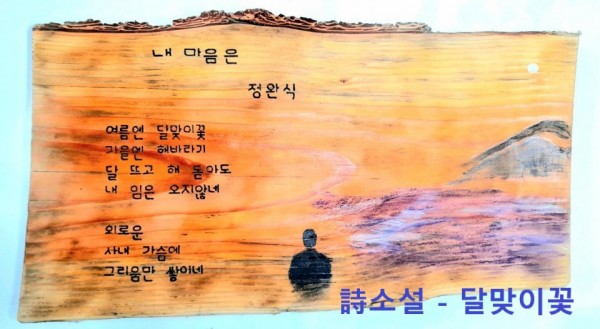 내 마음은
정완식
여름엔 달맞이꽃
가을엔 해바라기
달 뜨고 해 돋아도
내 임은 오지않네
외로운
사내 가슴에
그리움만 쌓이네
詩소설 - 달맞이꽃